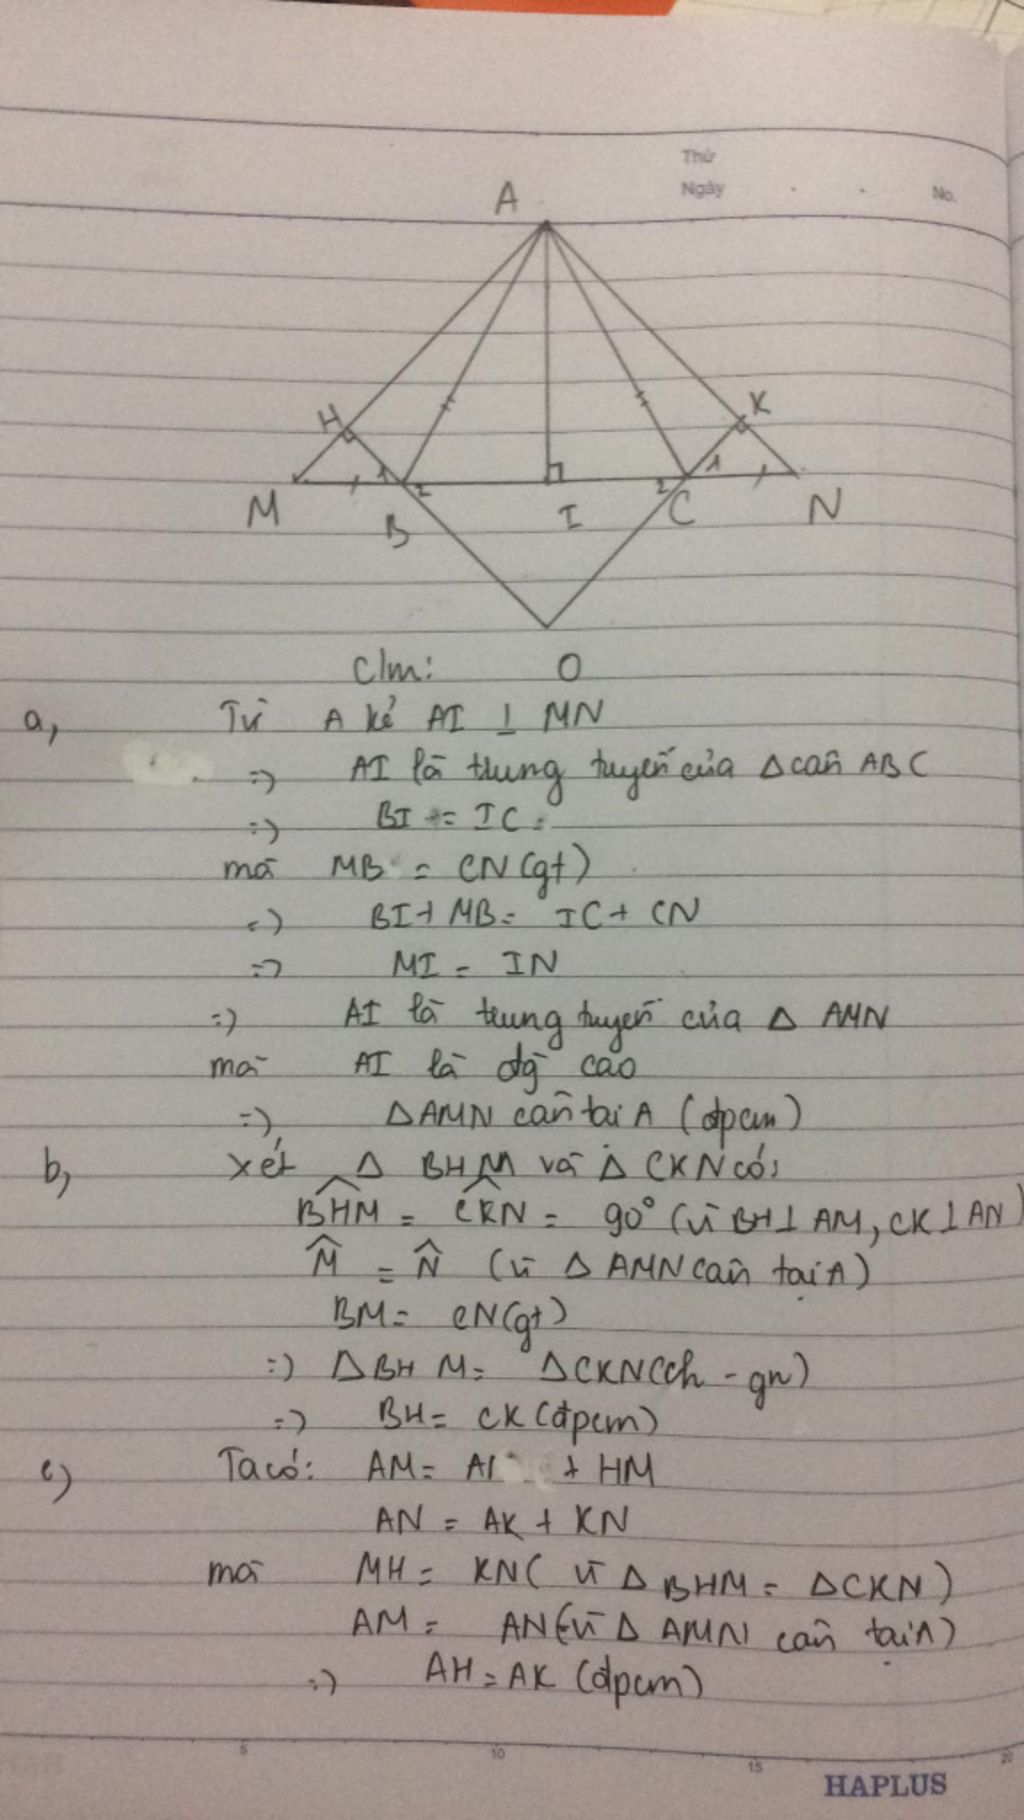 Thứ
Ngày . . No.
A
H K
1 1
M 2 2 N
B I C
C/m: O
a, Từ A kẻ AI ⊥ MN
=) AI là trung tuyến của Δ cân ABC
=) BI = IC
mà MB = CN (gt)
=) BI + MB = IC + CN
=) MI = IN
=) AI là trung tuyến của Δ AMN
mà AI là đg cao
=) Δ AMN cân tại A (đpcm)
b, Xét Δ BHM và Δ CKN có:
BHM = CKN = 90° (vì BH ⊥ AM, CK ⊥ AN)
M = N (vì Δ AMN cân tại A)
BM = CN (gt)
=) Δ BHM = Δ CKN (ch - gn)
=) BH = CK (đpcm)
c) Ta có: AM = + HM
AN = AK + KN
mà MH = KN ( vì Δ BHM = Δ CKN )
AM = AN (vì Δ AMN cân tại A)
=) AH = AK (đpcm)
5 10 15 20
HAPLUS